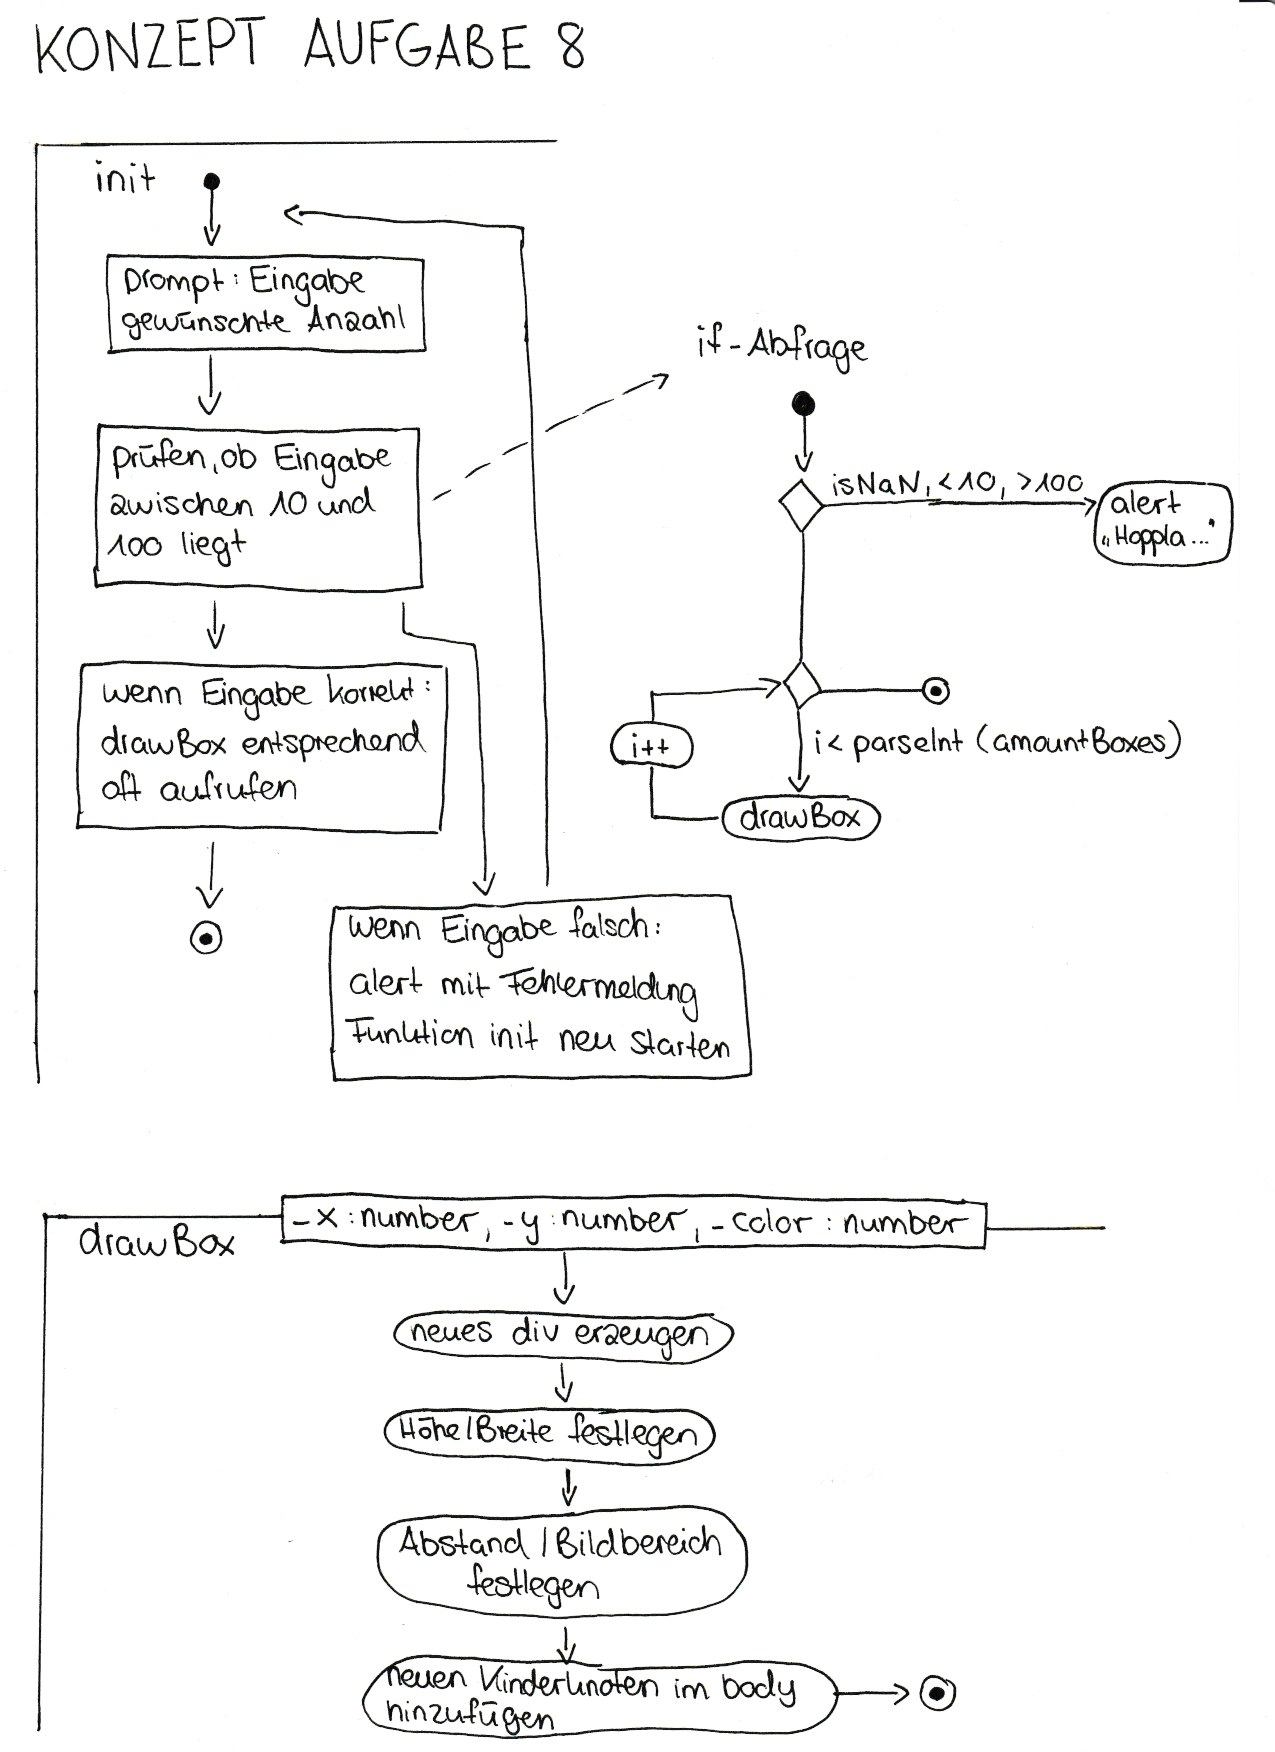 KONZEPT AUFGABE 8
init
prompt: Eingabe
gewünschte Anzahl
prüfen, ob Eingabe
zwischen 10 und
100 liegt
wenn Eingabe korrekt:
drawBox entsprechend
oft aufrufen
wenn Eingabe falsch:
alert mit Fehlermeldung
Funktion init neu starten
if-Abfrage
isNaN, <10, >100
alert
„Hoppla..."
i++
i< parseInt (amountBoxes)
drawBox
drawBox
-x:number, -y:number, -color:number
neues div erzeugen
Höhe/Breite festlegen
Abstand/Bildbereich
festlegen
neuen Kinderknoten im body
hinzufügen